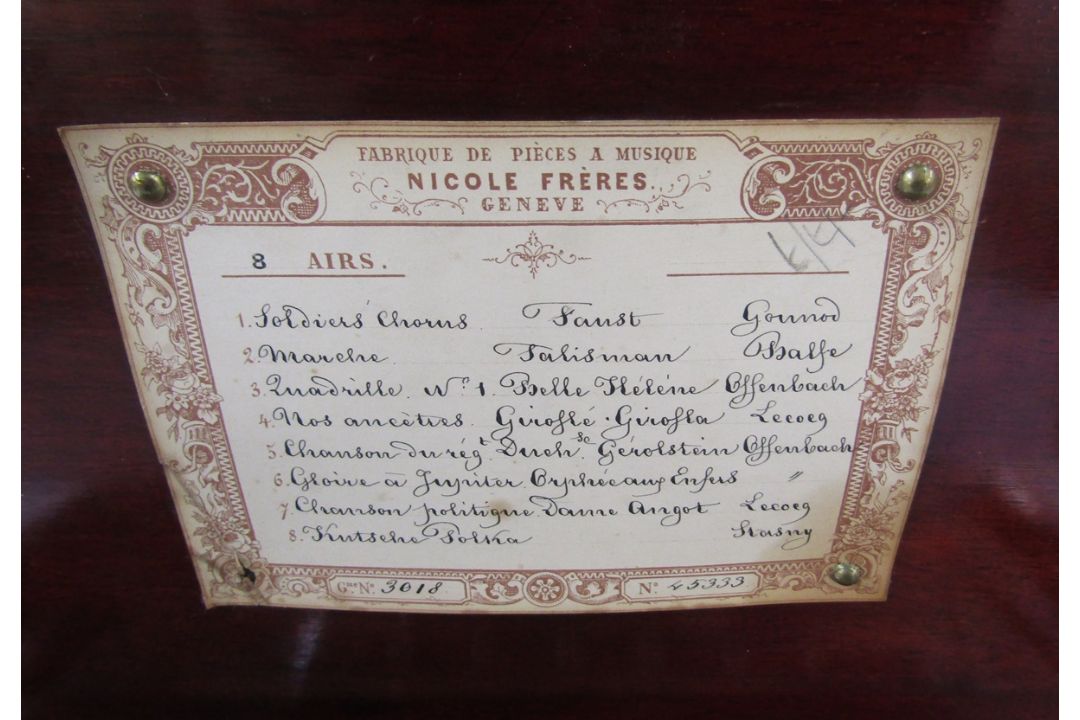 FABRIQUE DE PIÈCES A MUSIQUE
NICOLE FRÈRES.
GENEVE
8 AIRS.
1. Soldiers' Chorus. Faust Gounod
2. Marche. Talisman Balfe
3. Quadrille. Nº 1. Belle Hélène Offenbach
4. Nos ancêtres. Giroflé-Girofla Lecocq
5. Chanson du régt. Duchsse. Gérolstein Offenbach
6. Gloire à Jupiter. Orphée aux Enfers "
7. Chanson politique. Dame Angot Lecocq
8. Kutsche Polka Stasny
Gme Nº 3018. Nº 45333